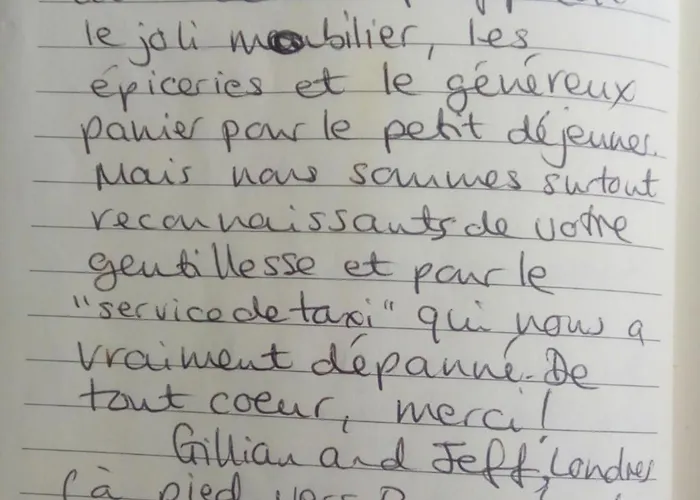 le joli mobilier, les
épiceries et le généreux
panier pour le petit déjeuner.
Mais nous sommes surtout
reconnaissants de votre
gentillesse et pour le
"service de taxi" qui nous a
vraiment dépanné. De
tout coeur, merci!
Gillian and Jeff, Londres
(à pied vers